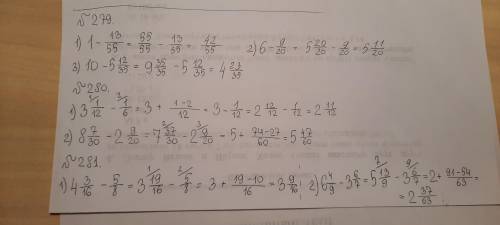 №279.
1) 1 - 13/55 = 55/55 - 13/55 = 42/55 2) 6 - 9/20 = 5 20/20 - 9/20 = 5 11/20
3) 10 - 5 12/35 = 9 35/35 - 5 12/35 = 4 23/35
№280.
1) 3 1/12 - 1/6 = 3 + (1-2)/12 = 3 - 1/12 = 2 12/12 - 1/12 = 2 11/12
2) 8 7/30 - 2 9/20 = 7 37/30 - 2 9/20 = 5 + (74-27)/60 = 5 47/60
№281.
1) 4 3/16 - 5/8 = 3 19/16 - 5/8 = 3 + (19-10)/16 = 3 9/16; 2) 6 4/9 - 3 6/7 = 5 13/9 - 3 6/7 = 2 + (91-54)/63 =
= 2 37/63.